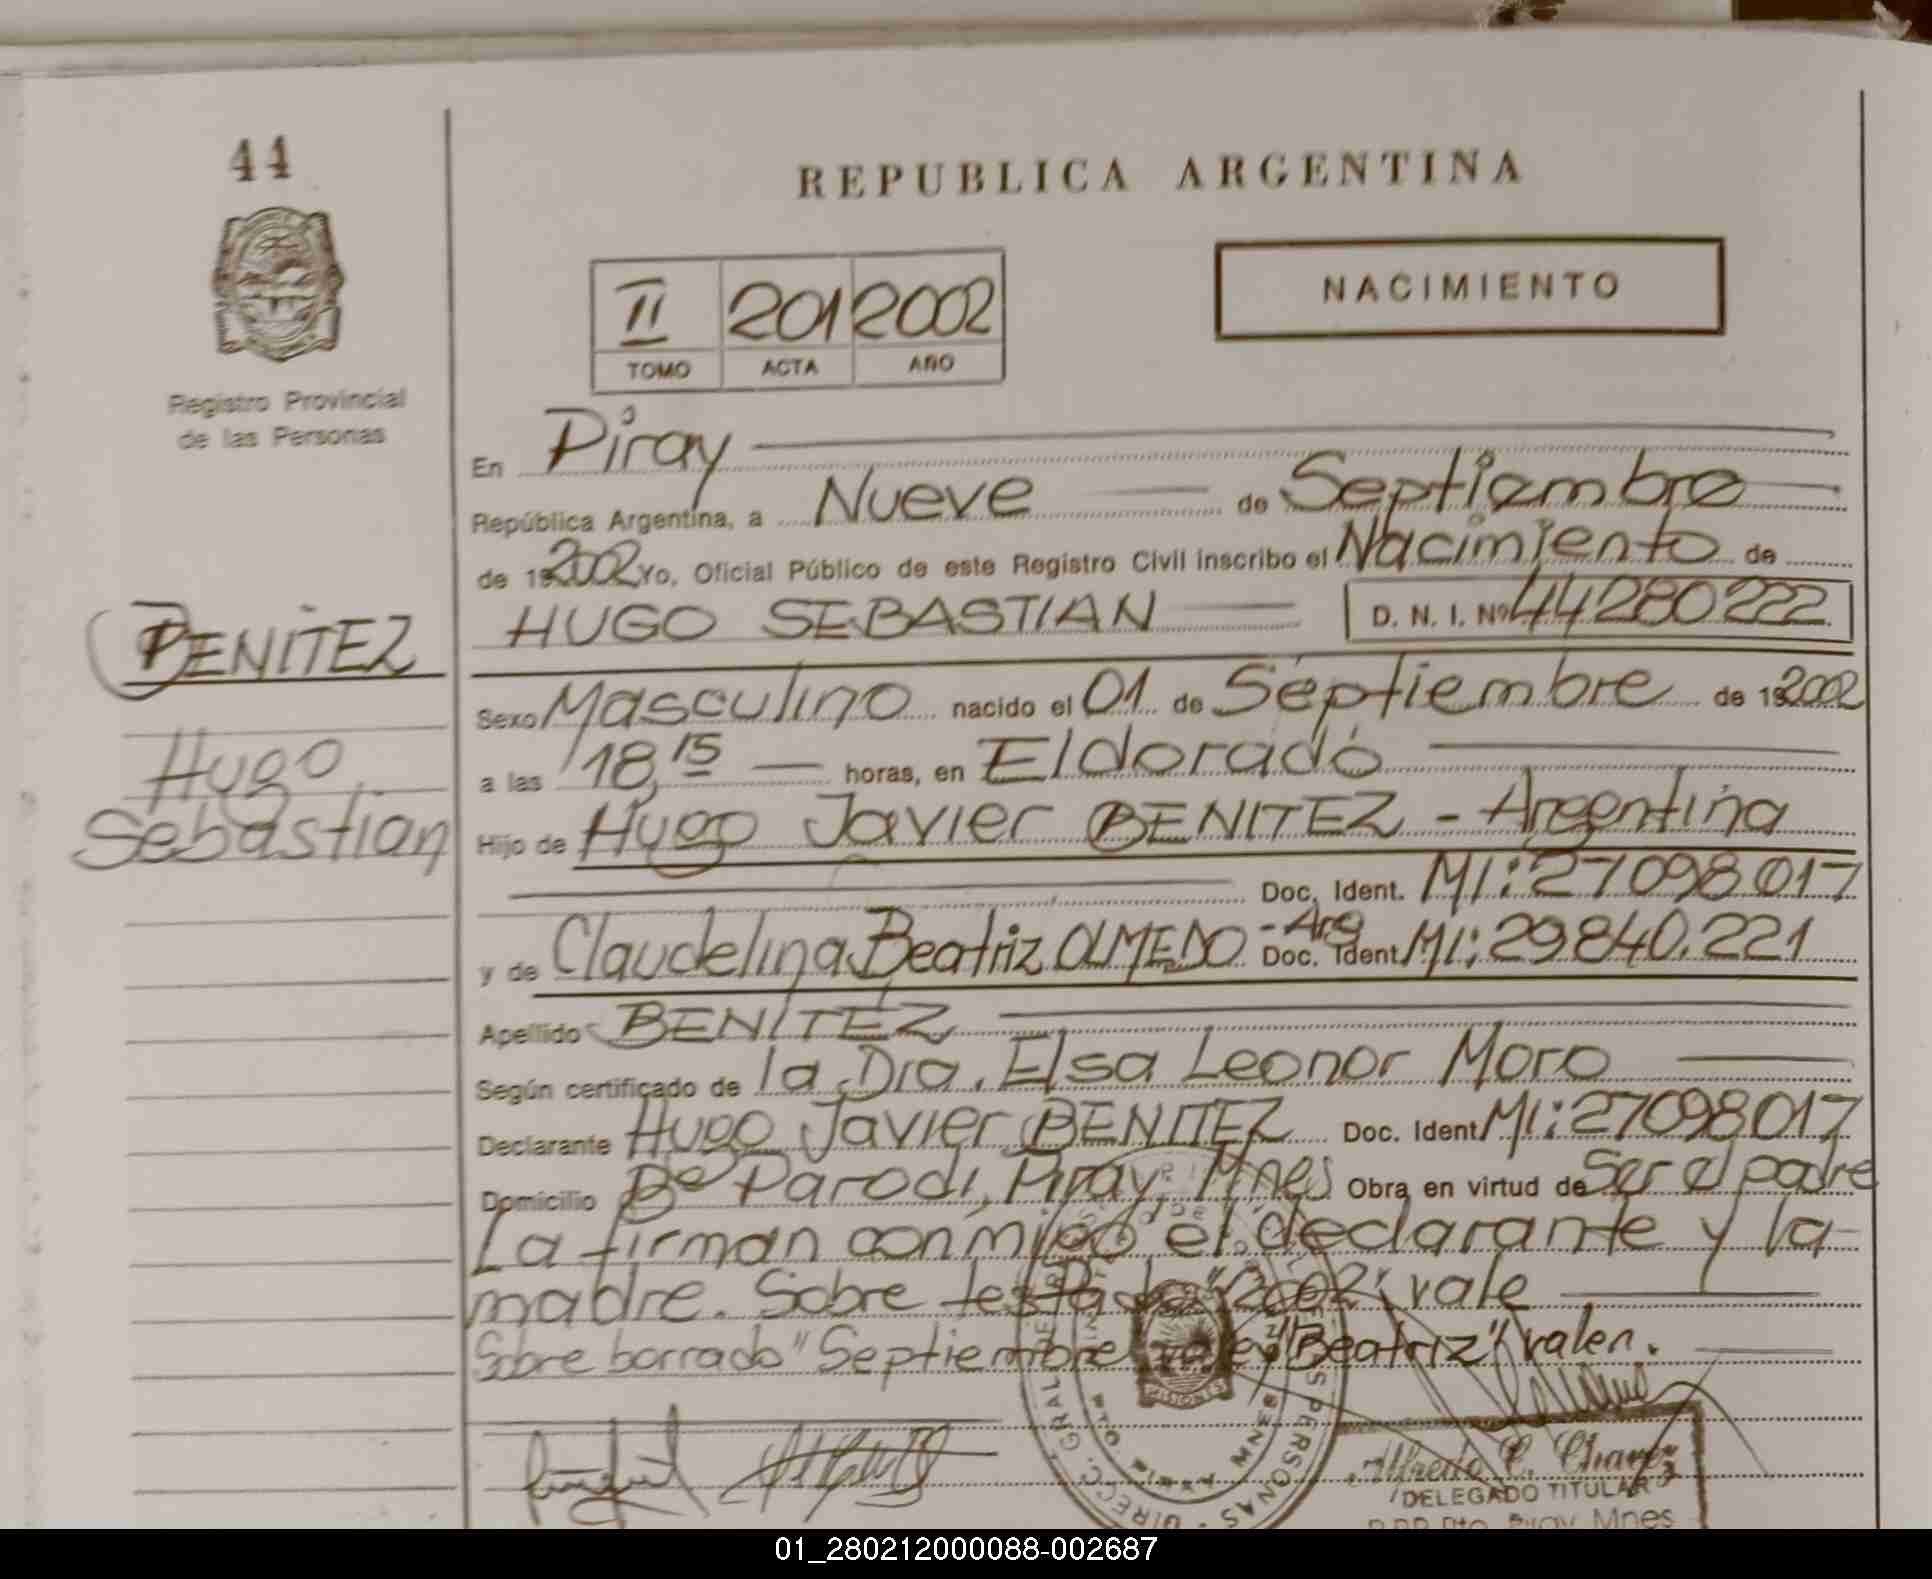 44
REPUBLICA ARGENTINA
NACIMIENTO
II 201 2002
TOMO ACTA AÑO
Registro Provincial
de las Personas
En Piray
República Argentina, a Nueve de Septiembre
de 19 2002 Yo, Oficial Público de este Registro Civil inscribo el Nacimiento de
HUGO SEBASTIAN D. N. I. Nº 44280222
BENITEZ
Hugo
Sebastian
Sexo Masculino nacido el 01 de Septiembre de 19 2002
a las 18,15 horas, en Eldorado
Hijo de Hugo Javier BENITEZ - Argentina
Doc. Ident. MI: 27098017
y de Claudelina Beatriz OLMEDO - Arg Doc. Ident MI: 29840.221
Apellido BENITEZ
Según certificado de la Dra. Elsa Leonor Moro
Declarante Hugo Javier BENITEZ Doc. Ident MI: 27098017
Domicilio Bº Parodi, Piray, Mnes Obra en virtud de Ser el padre
La firman conmigo el declarante y la
madre. Sobre testado "2002" vale
Sobre borrado "Septiembre" y "Beatriz" valen.
Alfredo C. Chavez
DELEGADO TITULAR
Piray Mnes
MISIONES
01_280212000088-002687